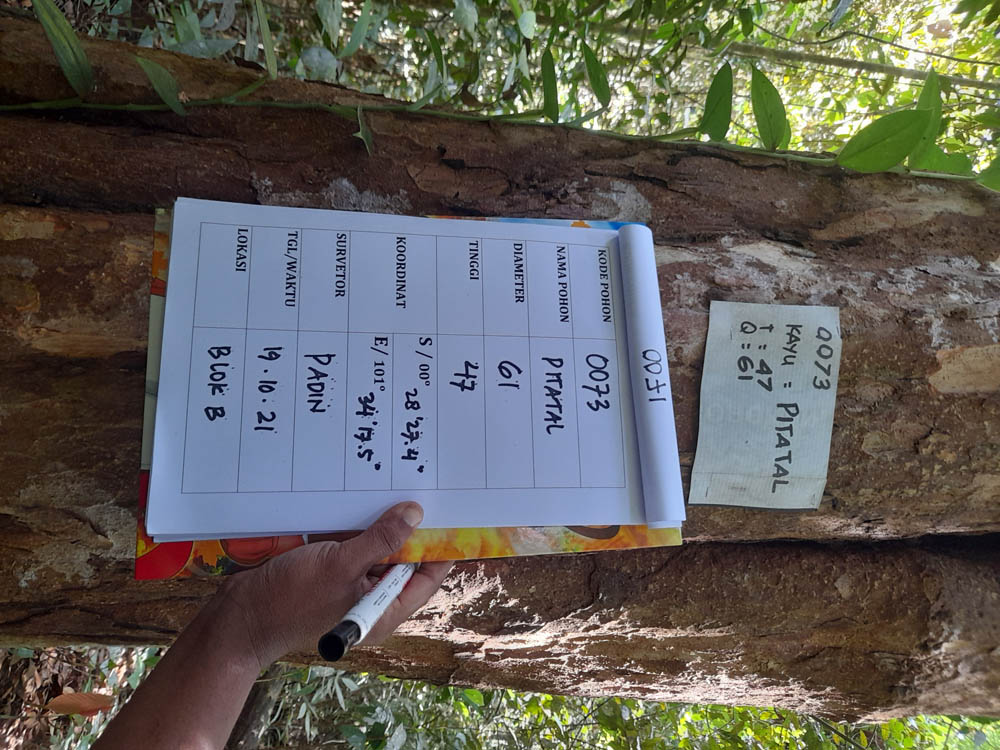 0073
KAYU = PITATAL
T = 47
Q = 61
0071
KODE POHON 0073
NAMA POHON PITATAL
DIAMETER 61
TINGGI 47
KOORDINAT S / 00° 28'27.4"
E/ 101° 34'17.5"
SURVETOR PADIN
TGL/WAKTU 19.10.21
LOKASI BLOK B